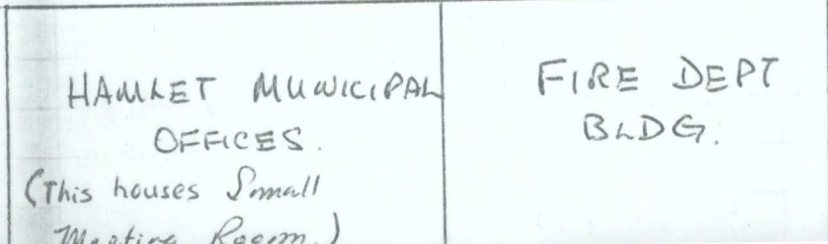 HAMLET MUNICIPAL
OFFICES.
(This houses Small
Meeting Room.)
FIRE DEPT
BLDG.